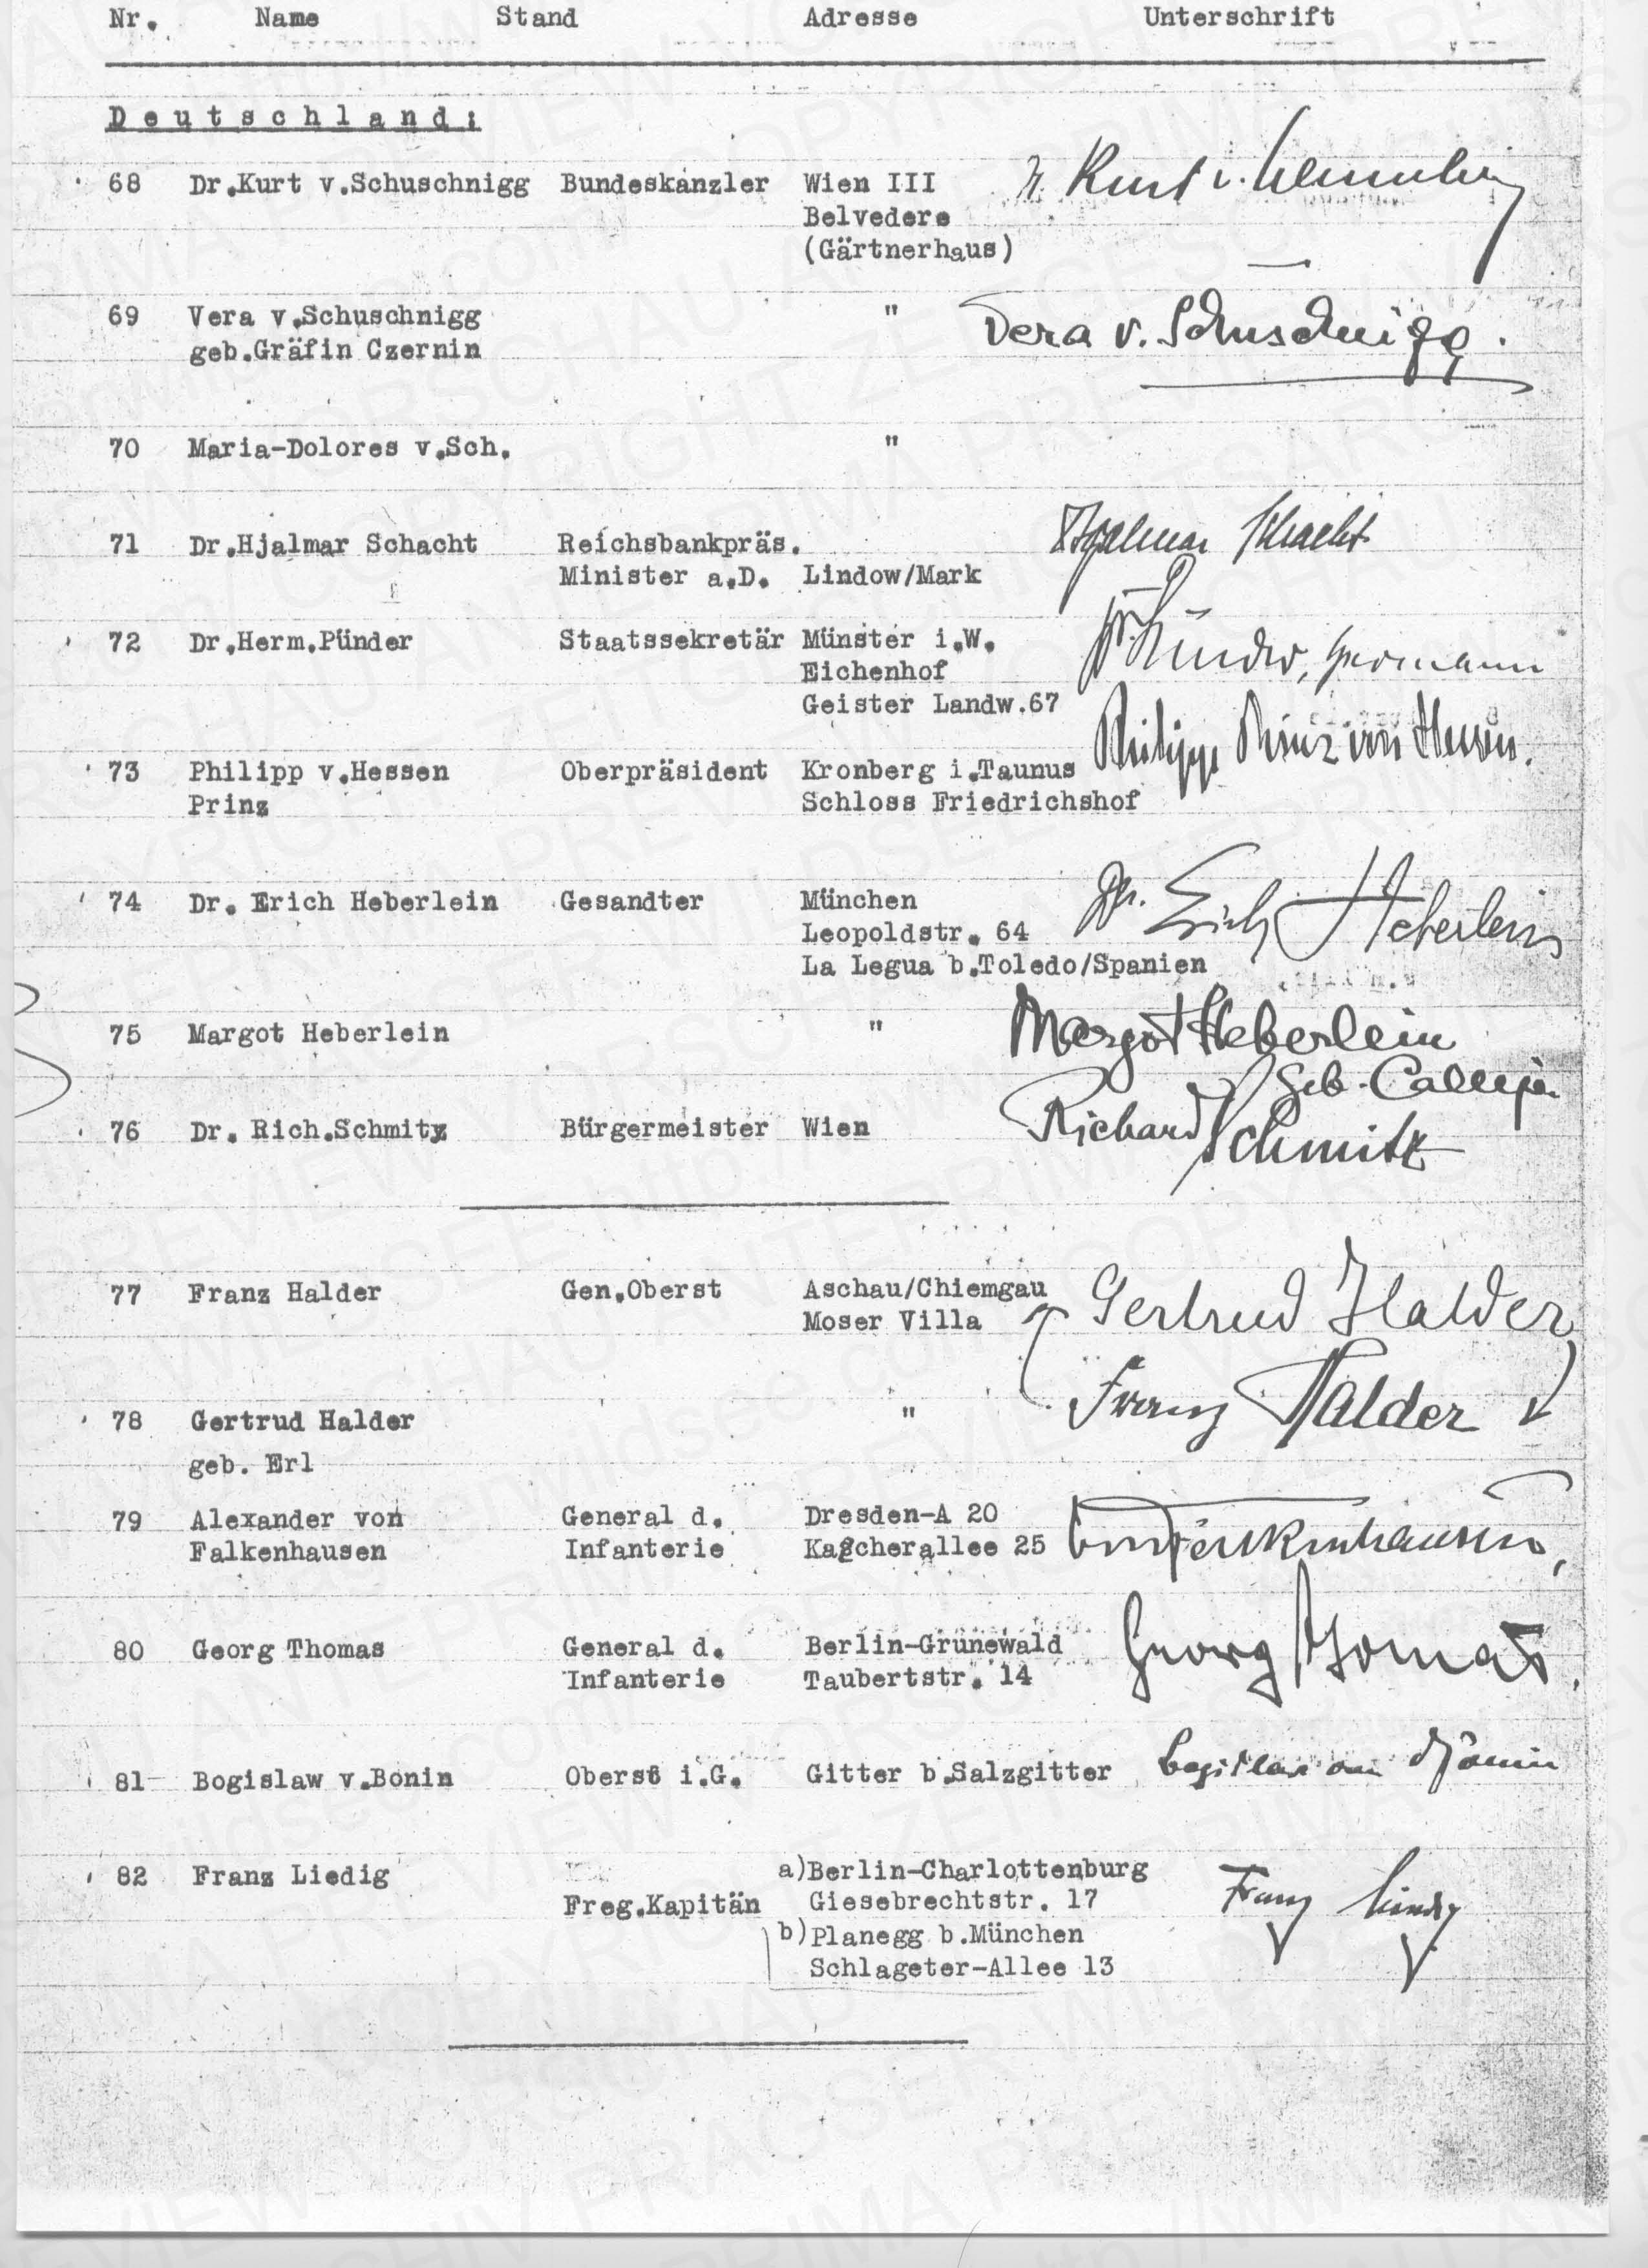 Nr. Name Stand Adresse Unterschrift
Deutschland:
68 Dr.Kurt v.Schuschnigg Bundeskanzler Wien III
Belvedere
(Gärtnerhaus)
69 Vera v.Schuschnigg " Vera v. Schuschnigg.
geb.Gräfin Czernin
70 Maria-Dolores v.Sch. "
71 Dr.Hjalmar Schacht Reichsbankpräs. Hjalmar Schacht
Minister a.D. Lindow/Mark
72 Dr.Herm.Pünder Staatssekretär Münster i.W. Dr. Pünder, Hermann
Eichenhof
Geister Landw.67
73 Philipp v.Hessen Oberpräsident Kronberg i.Taunus Philipp Prinz von Hessen.
Prinz Schloss Friedrichshof
74 Dr. Erich Heberlein Gesandter München Dr. Erich Heberlein
Leopoldstr. 64
La Legua b.Toledo/Spanien
75 Margot Heberlein " Margot Heberlein
geb. Calleja
76 Dr. Rich.Schmitz Bürgermeister Wien Richard Schmitz
77 Franz Halder Gen.Oberst Aschau/Chiemgau Gertrud Halder
Moser Villa
78 Gertrud Halder " Franz Halder
geb. Erl
79 Alexander von General d. Dresden-A 20
Falkenhausen Infanterie Kaecherallee 25 von Falkenhausen
80 Georg Thomas General d. Berlin-Grunewald Georg Thomas.
Infanterie Taubertstr. 14
81 Bogislaw v.Bonin Oberst i.G. Gitter b.Salzgitter Bogislaw von Bonin
82 Franz Liedig a)Berlin-Charlottenburg
Freg.Kapitän Giesebrechtstr. 17 Franz Liedig
b)Planegg b.München
Schlageter-Allee 13